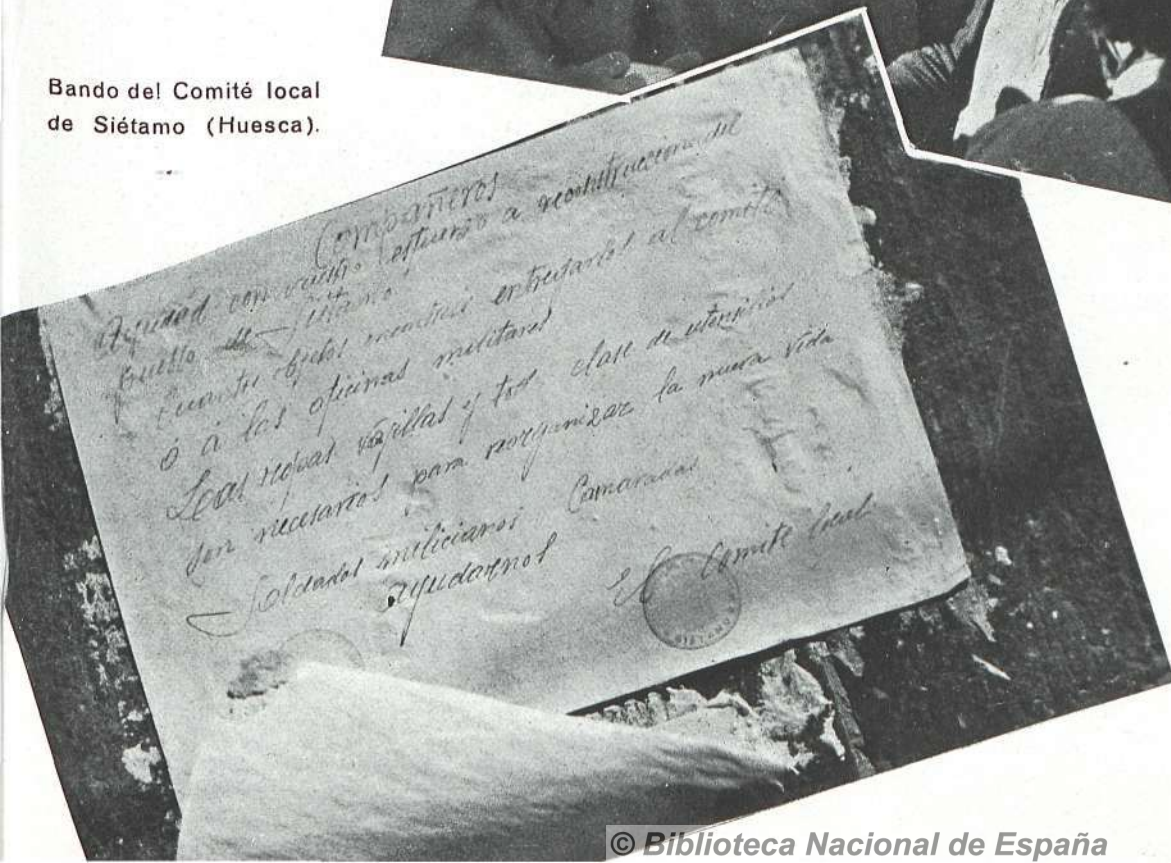 Bando del Comité local
de Siétamo (Huesca).
Compañeros
Ayudad con vuestro esfuerzo a reconstruccion del
pueblo de Siétamo
Cuantos objetos encontreis entregarlos al comité
ó á las oficinas militares
Las ropas vajillas y toda clase de utensilios
son necesarios para reorganizar la nueva vida
Soldados milicianos Camaradas
ayudarnos
El Comité local
SIÉTAMO
© Biblioteca Nacional de España